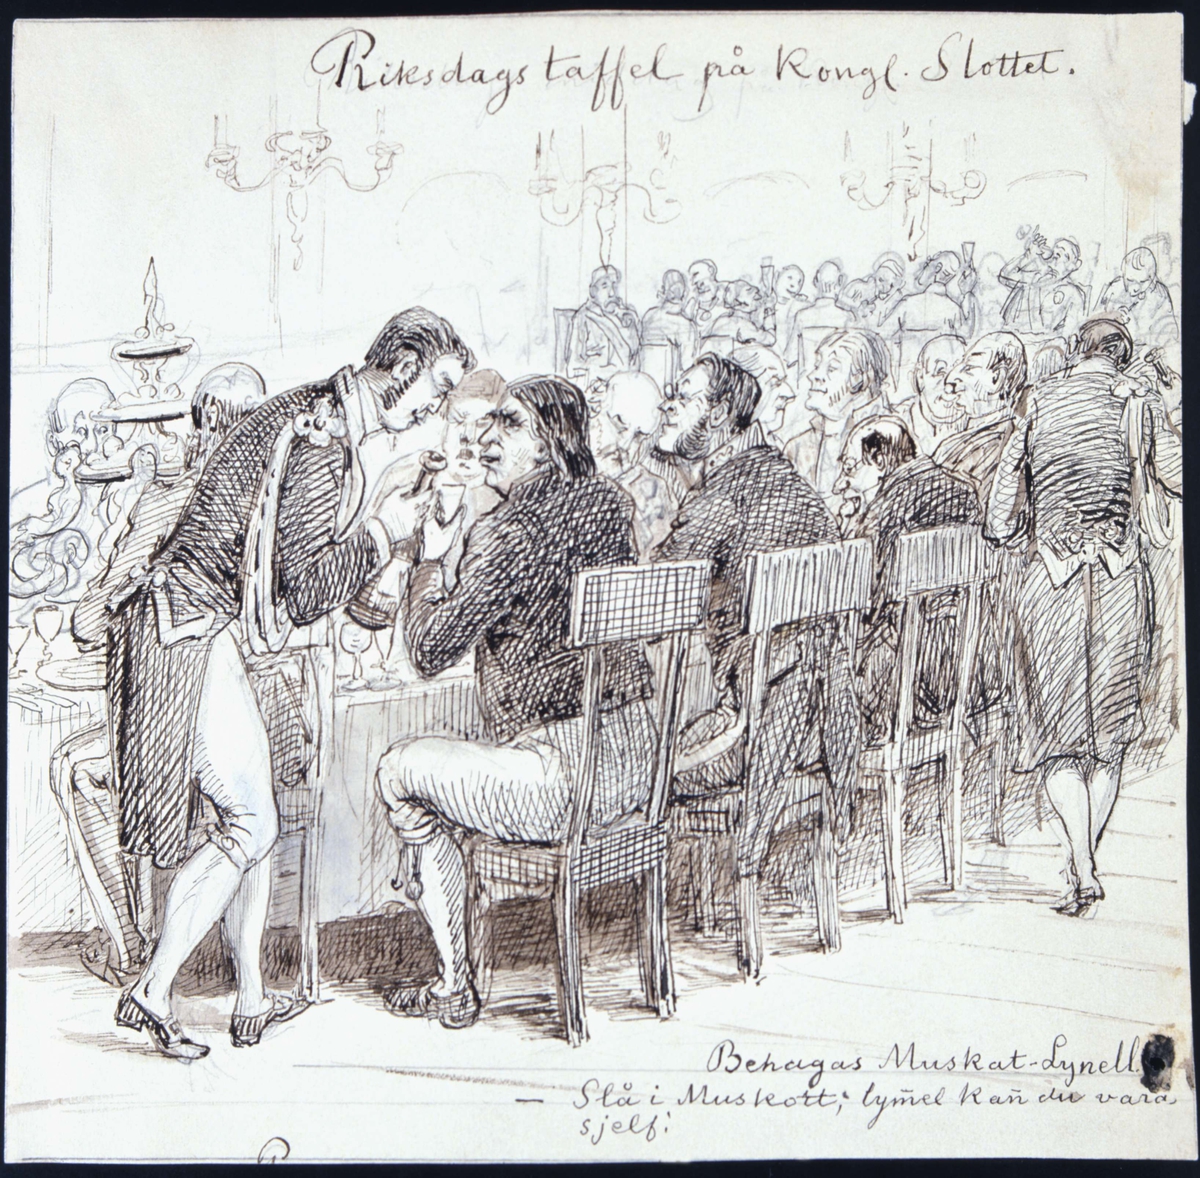 Riksdags taffel på Kongl. Slottet.
Behagas Muskat-Lynell
— Slå i Muskott; lym̄el kan̄ du vara
sjelf!